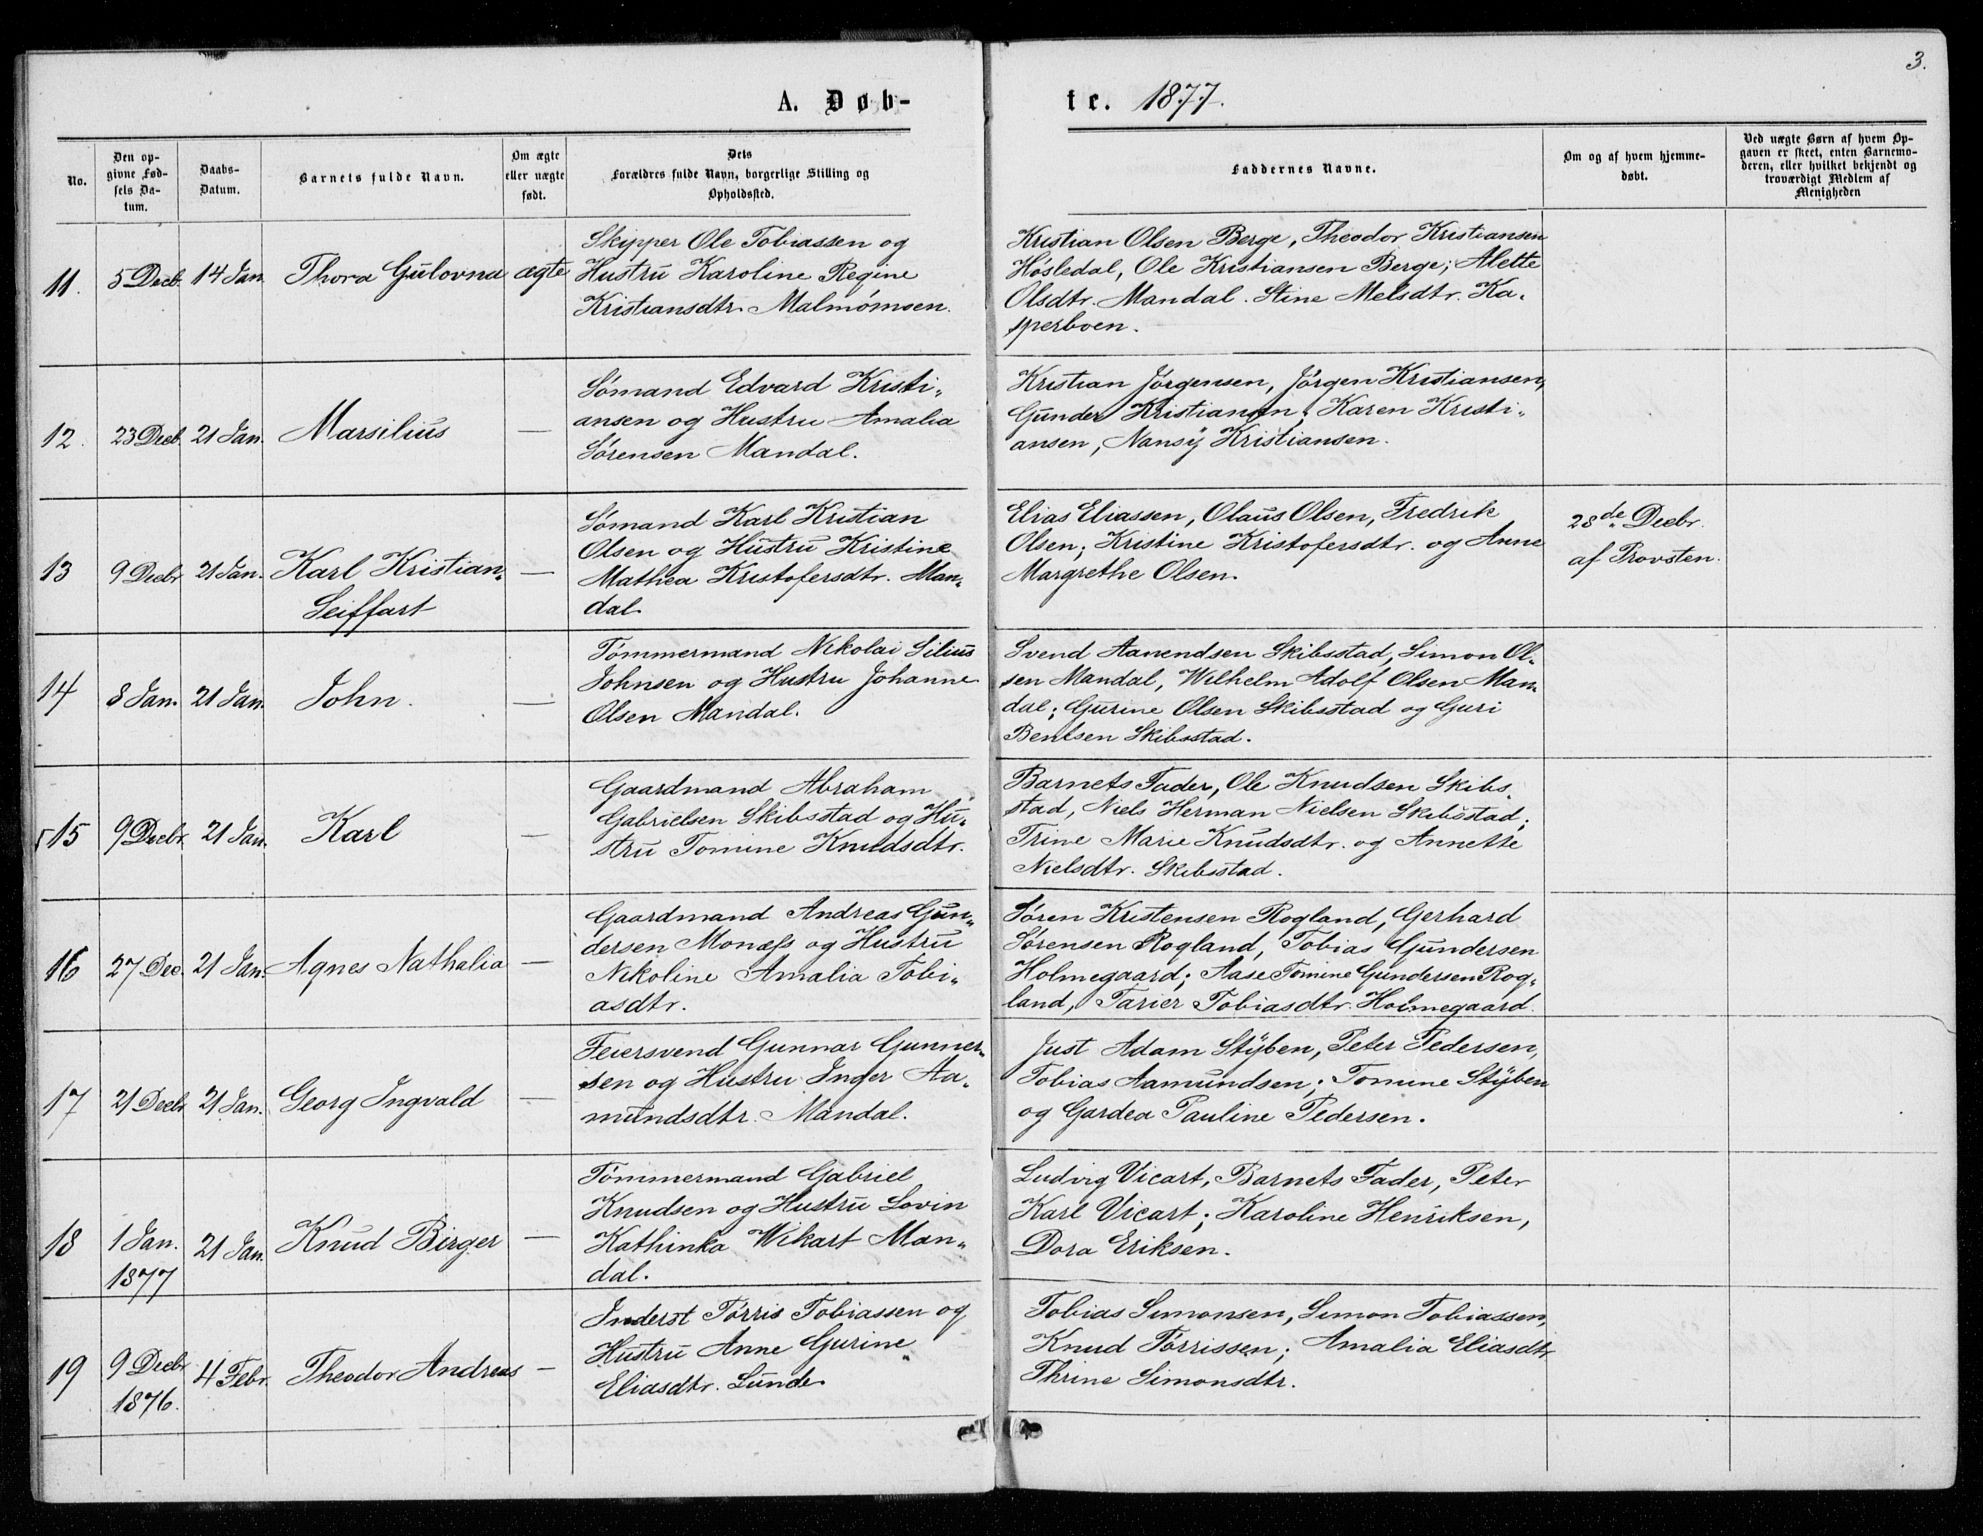 3.
A. Døb-
te. 1877.
No.
Den op-
givne Fød-
sels Da-
tum.
Daabs-
Datum.
Barnets fulde Navn.
Om ægte
eller uægte
født.
Dets
Forældres fulde Navn, borgerlige Stilling og
Opholdssted.
Faddernes Navne.
Om og af hvem hjemme-
døbt.
Ved uægte Børn af hvem Op-
gaven er skeet, enten Barnemo-
deren, eller hvilket bekjendt og
troværdigt Medlem af
Menigheden
11. 5 Decb. 14 Jan. Thora Gulovna ægte
Skipper Ole Tobiassen og
Hustru Karoline Regine
Kristiansdtr. Malmø
Kristian Olsen Berge, Theodor Kristiansen
Høsledal, Ole Kristiansen Berge; Alette
Olsdtr. Mandal. Stine Melsdtr. Ka-
sperboen.
12. 23 Decb. 21 Jan. Marsilius —
Sømand Edvard Kristi-
ansen og Hustru Amalia
Sørensen Mandal.
Kristian Jørgensen, Jørgen Kristiansen,
Gunder Kristiansen; Karen Kristi-
ansen, Nansÿ Kristiansen.
13 9 Decbr. 21 Jan. Karl Kristian
Seiffart —
Sømand Karl Kristian
Olsen og Hustru Kristine
Mathea Kristofersdtr. Man-
dal.
Elias Eliassen, Olaus Olsen, Fredrik
Olsen; Kristine Kristofersdtr. og Anne
Margrethe Olsen.
28de Decbr.
af Provsten.
14 8 Jan. 21 Jan. John. —
Tømmermand Nikolai Silius
Johnsen og Hustru Johanne
Olsen Mandal.
Svend Aanendsen Skibsstad, Simon Ol-
sen Mandal, Wilhelm Adolf Olsen Man-
dal; Gurine Olsen Skibsstad og Guri
Bentsen Skibsstad.
15 9 Decbr. 21 Jan. Karl —
Gaardmand Abraham
Gabrielsen Skibsstad og Hu-
stru Tomine Knudsdtr.
Barnets Fader, Ole Knudsen Skibs-
stad, Niels Herman Nielsen Skibsstad;
Trine Marie Knudsdtr. og Annette
Nielsdtr. Skibsstad.
16 27 Dec. 21 Jan. Agnes Nathalia —
Gaardmand Andreas Gun-
dersen Monæss og Hustru
Nikoline Amalia Tobi-
asdtr.
Søren Kristensen Rogland, Gerhard
Sørensen Rogland, Tobias Gundersen
Holmegaard; Aase Tomine Gundersen Rog-
land, Tarier Tobiasdtr. Holmegaard.
17 21 Decbr. 21 Jan. Georg Ingvald —
Feiersvend Gunnar Gunner-
sen og Hustru Inger Aa-
mundsdtr. Mandal.
Just Adam Stÿben, Peter Pedersen,
Tobias Aamundsen; Tomine Stÿben
og Gardea Pauline Pedersen.
18 1 Jan.
1877 21 Jan. Knud Birger —
Tømmermand Gabriel
Knudsen og Hustru Lovin
Kathinka Wikart Man-
dal.
Ludvig Vicart, Barnets Fader, Peter
Karl Vicart; Karoline Henriksen,
Dora Eriksen.
19 9 Decbr.
1876. 4 Febr. Theodor Andreas —
Inderst Tørris Tobiassen og
Hustru Anne Gurine
Eliasdtr. Lunde
Tobias Simonsen, Simon Tobiassen,
Knud Tørrissen; Amalia Eliasdtr
Thrine Simonsdtr.